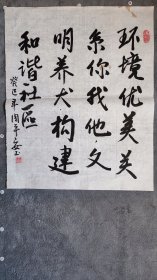 环境优美关
系你我他文
明养犬构建
和谐社区
癸巳年周平安书